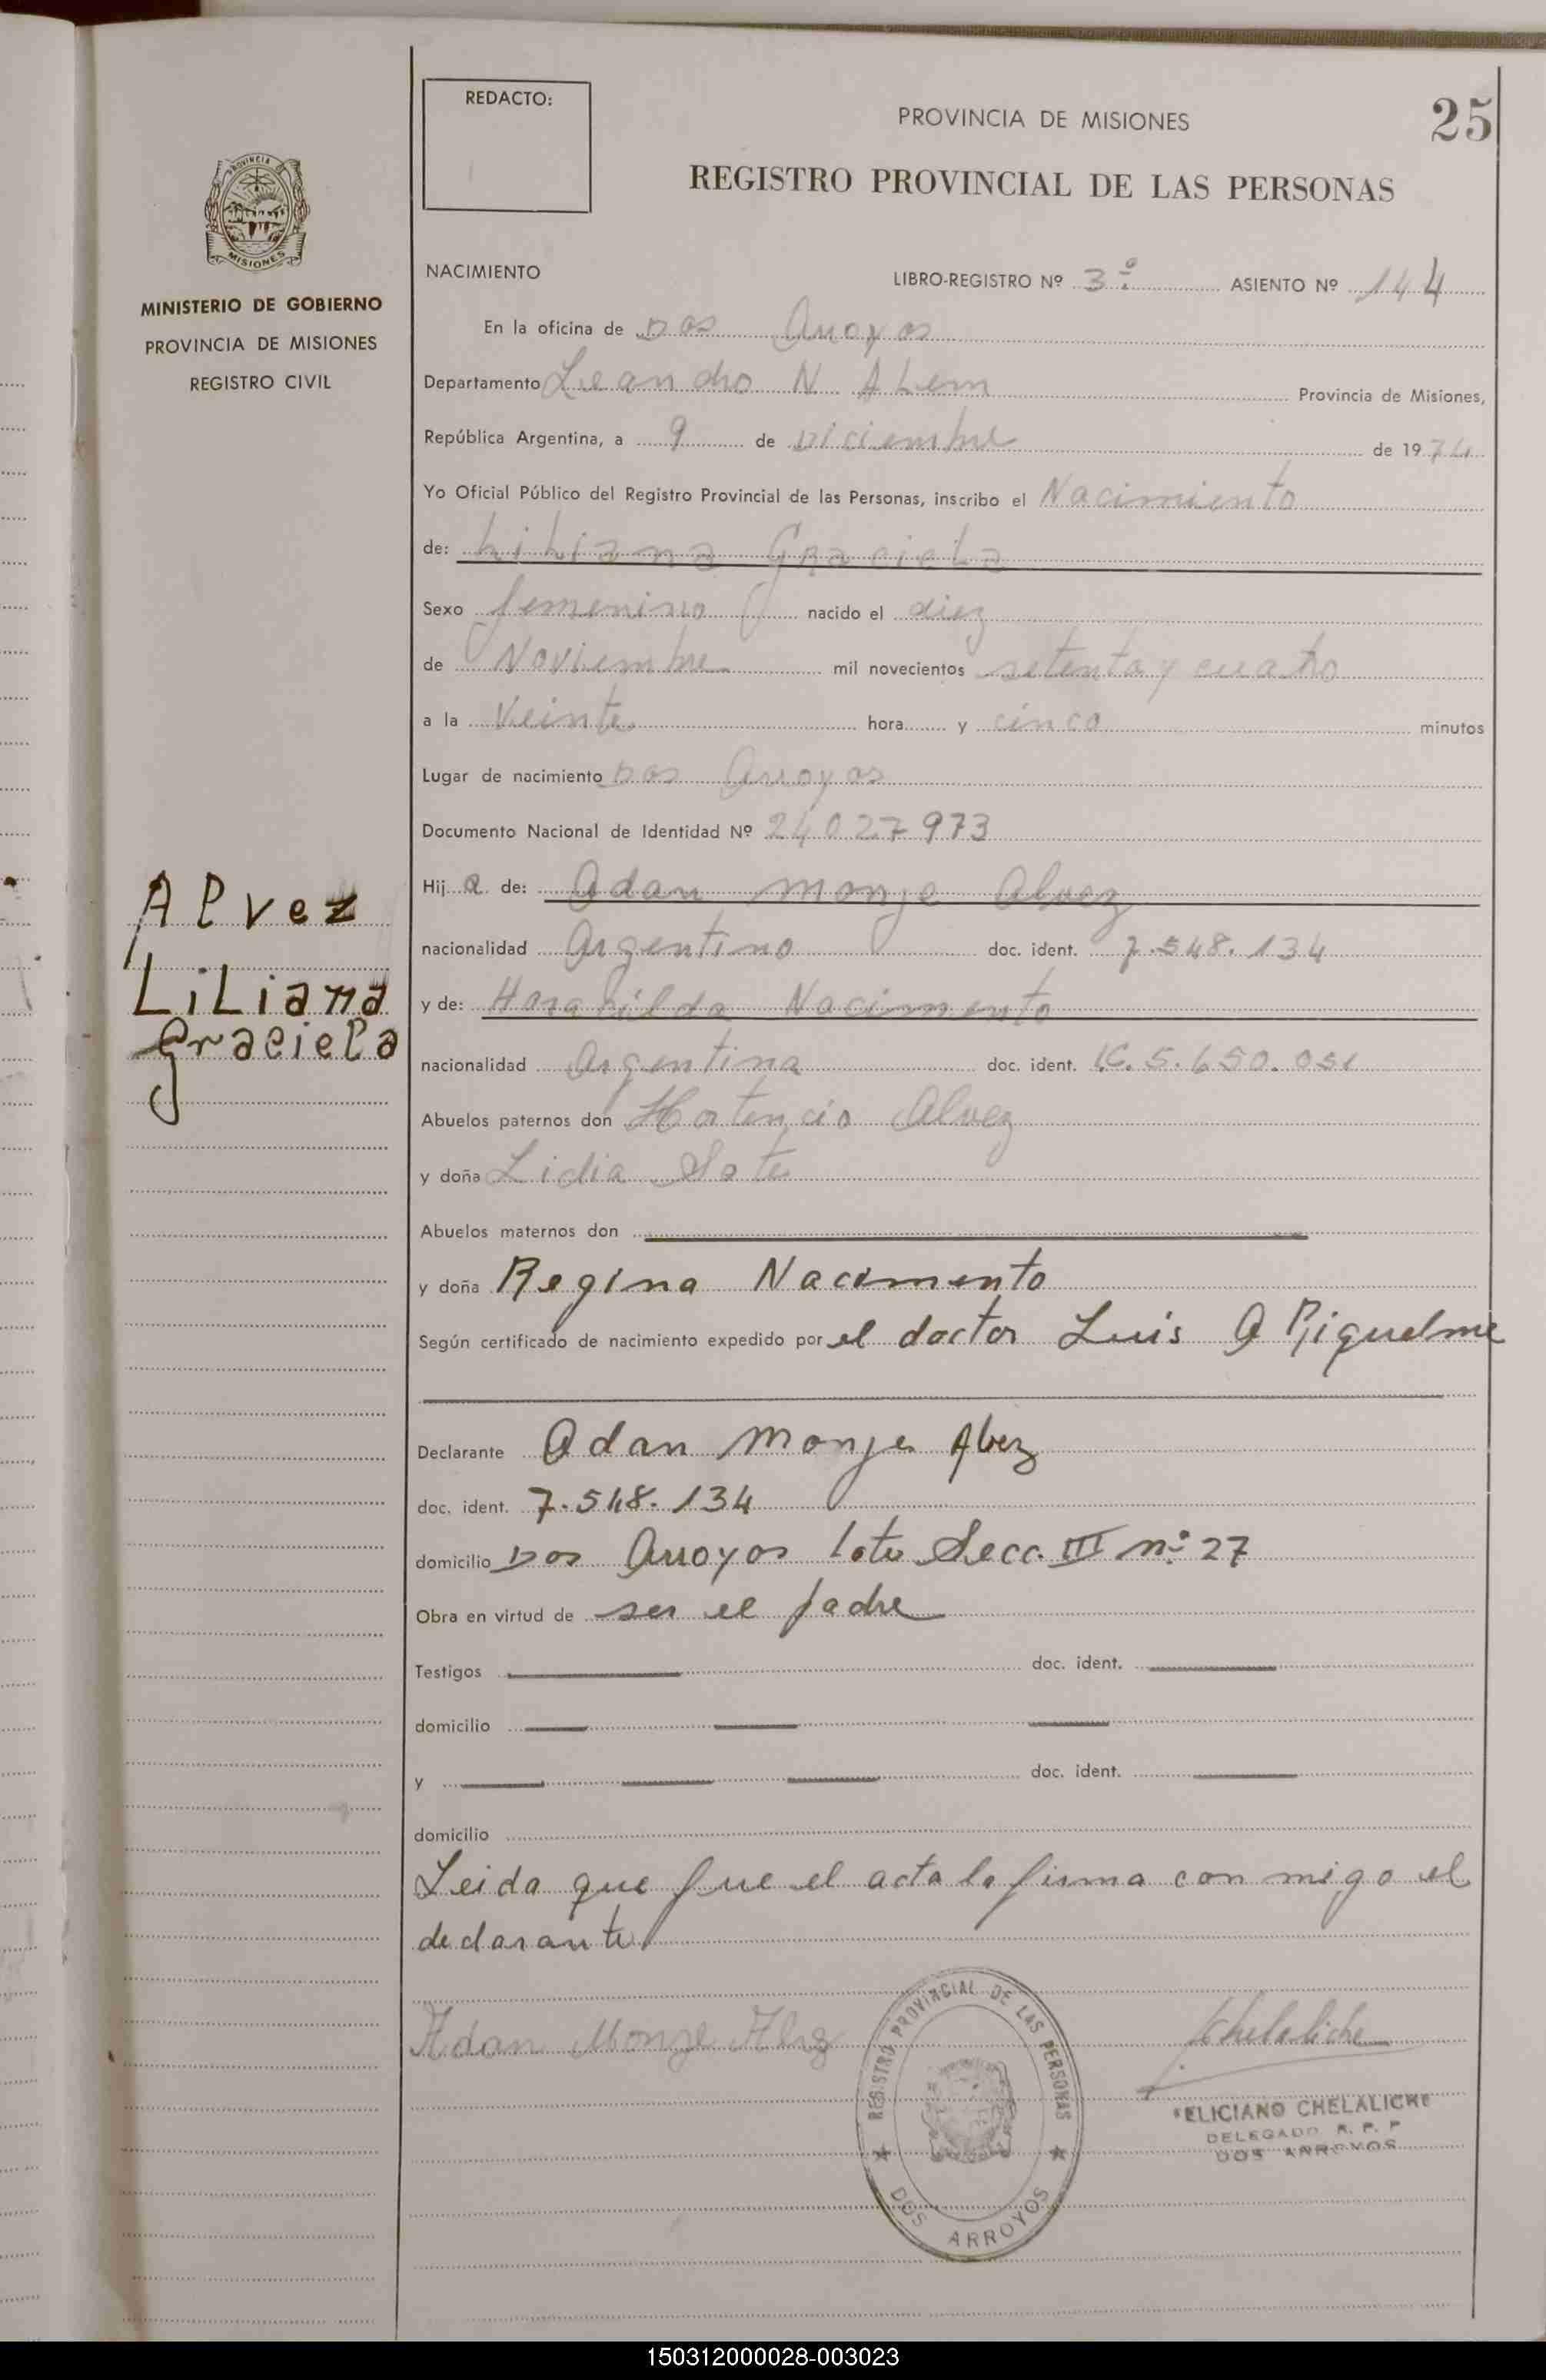 25
REDACTO:
PROVINCIA DE MISIONES
REGISTRO PROVINCIAL DE LAS PERSONAS
PROVINCIA
MISIONES
MINISTERIO DE GOBIERNO
PROVINCIA DE MISIONES
REGISTRO CIVIL
NACIMIENTO LIBRO-REGISTRO Nº 3º ASIENTO Nº 144
En la oficina de Dos Arroyos
Departamento Leandro N. Alem Provincia de Misiones,
República Argentina, a 9 de Diciembre de 1974
Yo Oficial Público del Registro Provincial de las Personas, inscribo el Nacimiento
de: Liliana Graciela
Sexo femenino nacido el diez
de Noviembre mil novecientos setenta y cuatro
a la Veinte hora y cinco minutos
Lugar de nacimiento Dos Arroyos
Documento Nacional de Identidad Nº 24027973
Alvez
Liliana
Graciela
Hija de: Adan Monje Alvez
nacionalidad Argentino doc. ident. 7.548.134
y de: Nacimento
nacionalidad Argentina doc. ident. 5.650.051
Abuelos paternos don Hortencio Alvez
y doña Lidia
Abuelos maternos don
y doña Regina Nacimento
Según certificado de nacimiento expedido por el doctor Luis A Riquelme
Declarante Adan Monje Alvez
doc. ident. 7.548.134
domicilio Dos Arroyos lote Secc. III nº 27
Obra en virtud de ser el padre
Testigos doc. ident.
domicilio
y doc. ident.
domicilio
Leida que fue el acta la firma con migo el
declarante
Adan Monje Alvez
Chelaliche
REGISTRO PROVINCIAL DE LAS PERSONAS
DOS ARROYOS
FELICIANO CHELALICHE
DELEGADO R. P. P
DOS ARROYOS
150312000028-003023